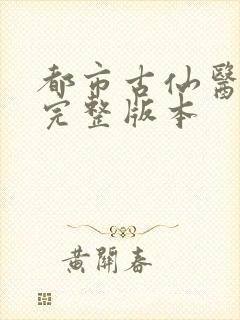 都市古仙醫
完整版本
黃開春